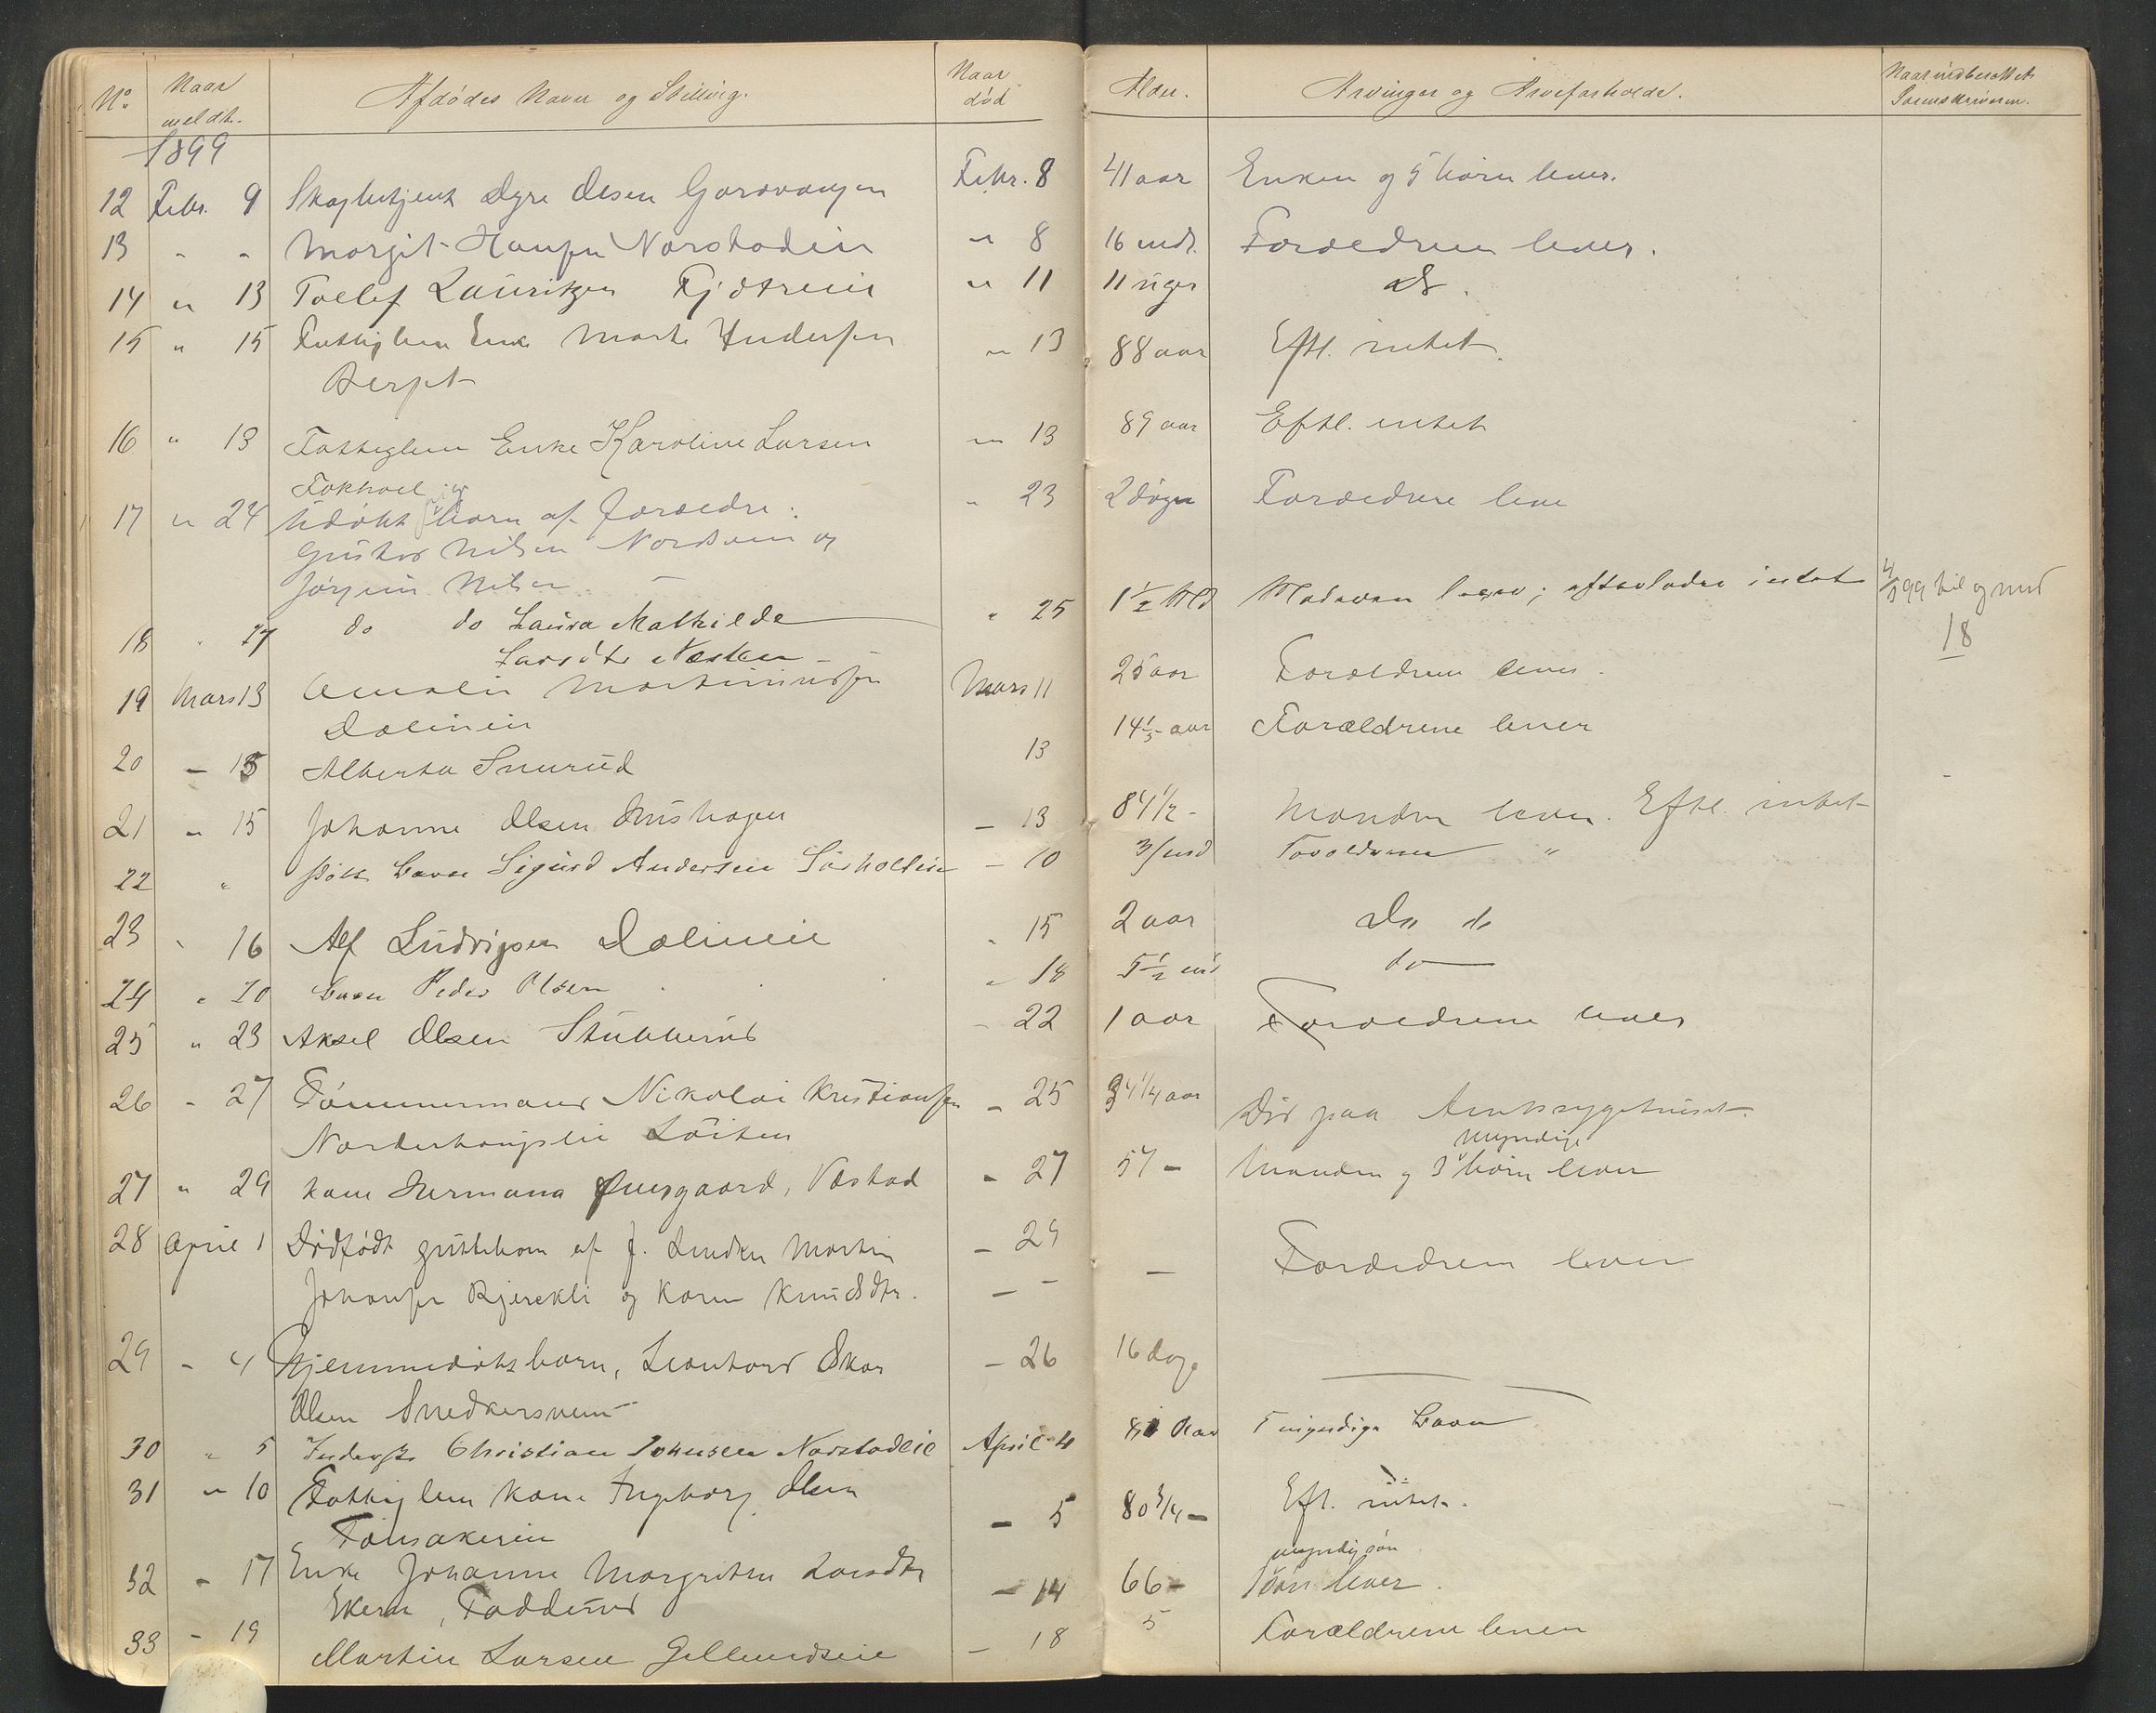 No Naar meldt. Afdødes Navn og Stilling. Naar død Alder. Arvinger og Arveforholde. Naar indberettet Sorenskriveren.
1899
12 Febr. 9 Skogbetjent Dyre Olsen Febr. 8 41 aar Enken og 5 børn lever.
13 " " Margit Hansen Norstadeie " 8 16 mdr. Forældrene lever.
14 " 13 Tollef Lauritzen " 11 11 uger do.
15 " 15 Fattiglem Enke Marte Andersen " 13 88 aar Eftl. intet.
16 " 13 Fattiglem Enke Karoline Larsen " 13 89 aar Eftl. intet
Fokhoel
17 " 24 Udøbt pige barn af Forældre: " 23 2 døgn Forældrene lever
Gustav Nilsen og
Jørgine Nilsen
18 " 27 do do Laura Mathilde " 25 1 1/2 Md Moderen lever; efterlader intet 4/3 99 til og med
Larsdtr 18
19 Mars 13 Amalie Martiniussen Mars 11 25 aar Forældrene lever.
Dælineie
20 — 15 Alberta Snurud 13 14 1/3 aar Forældrene lever
21 " 15 Johanne Olsen — 13 84 1/2 - Manden lever. Eftl. intet
22 " Barn Sigurd Andersen — 10 3/md Forældrene "
23 " 16 Alf Ludvigsen Dælineie " 15 2 aar Do do
24 " 20 Barn Peder Olsen " 18 5 1/2 md do
25 " 23 Aksel Olsen Stubberud - 22 1 aar Forældrene lever
26 - 27 Tømmermand Nikolai Kristiansen - 25 34 1/4 aar Død paa Amtssygehuset.
Løiten
27 " 29 Kone Hermana Øvergaard, - 27 57 - Manden og 3 myndige børn lever
28 April 1 Dødfødt guttebarn af f. Martin — 29 — Forældrene lever
Johansen Bjerekli og Karen Knudsdtr. — —
29 - 4 Hjemmedøbt barn, Leonhard Oskar — 26 16 dage
Olsen Snedkersveen
30 " 5 Christian Johnsen Norstadeie April 4 aar 5 myndige Børn
31 " 10 Fattiglem Kone Ingeborg Olsen — 5 80 3/4 — Eftl. intet.
32 - 17 Enke Johanne Margrethe Larsdtr — 14 66 - myndig søn lever.
Ekern, Fadderud
33 - 19 Martin Larsen Gillundseie — 18 5 Forældrene lever